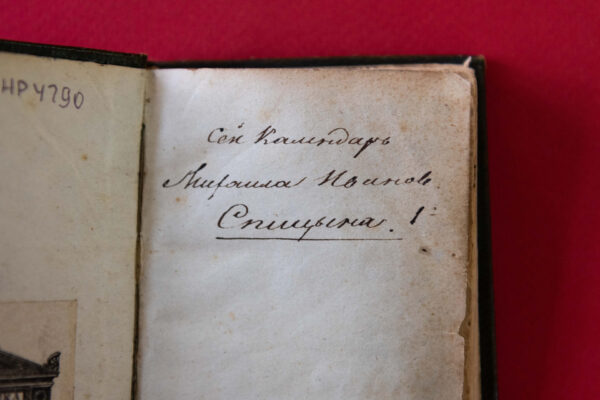 НРЧ290
Сей Календарь
Михаила Иванов.
Спицына. 1